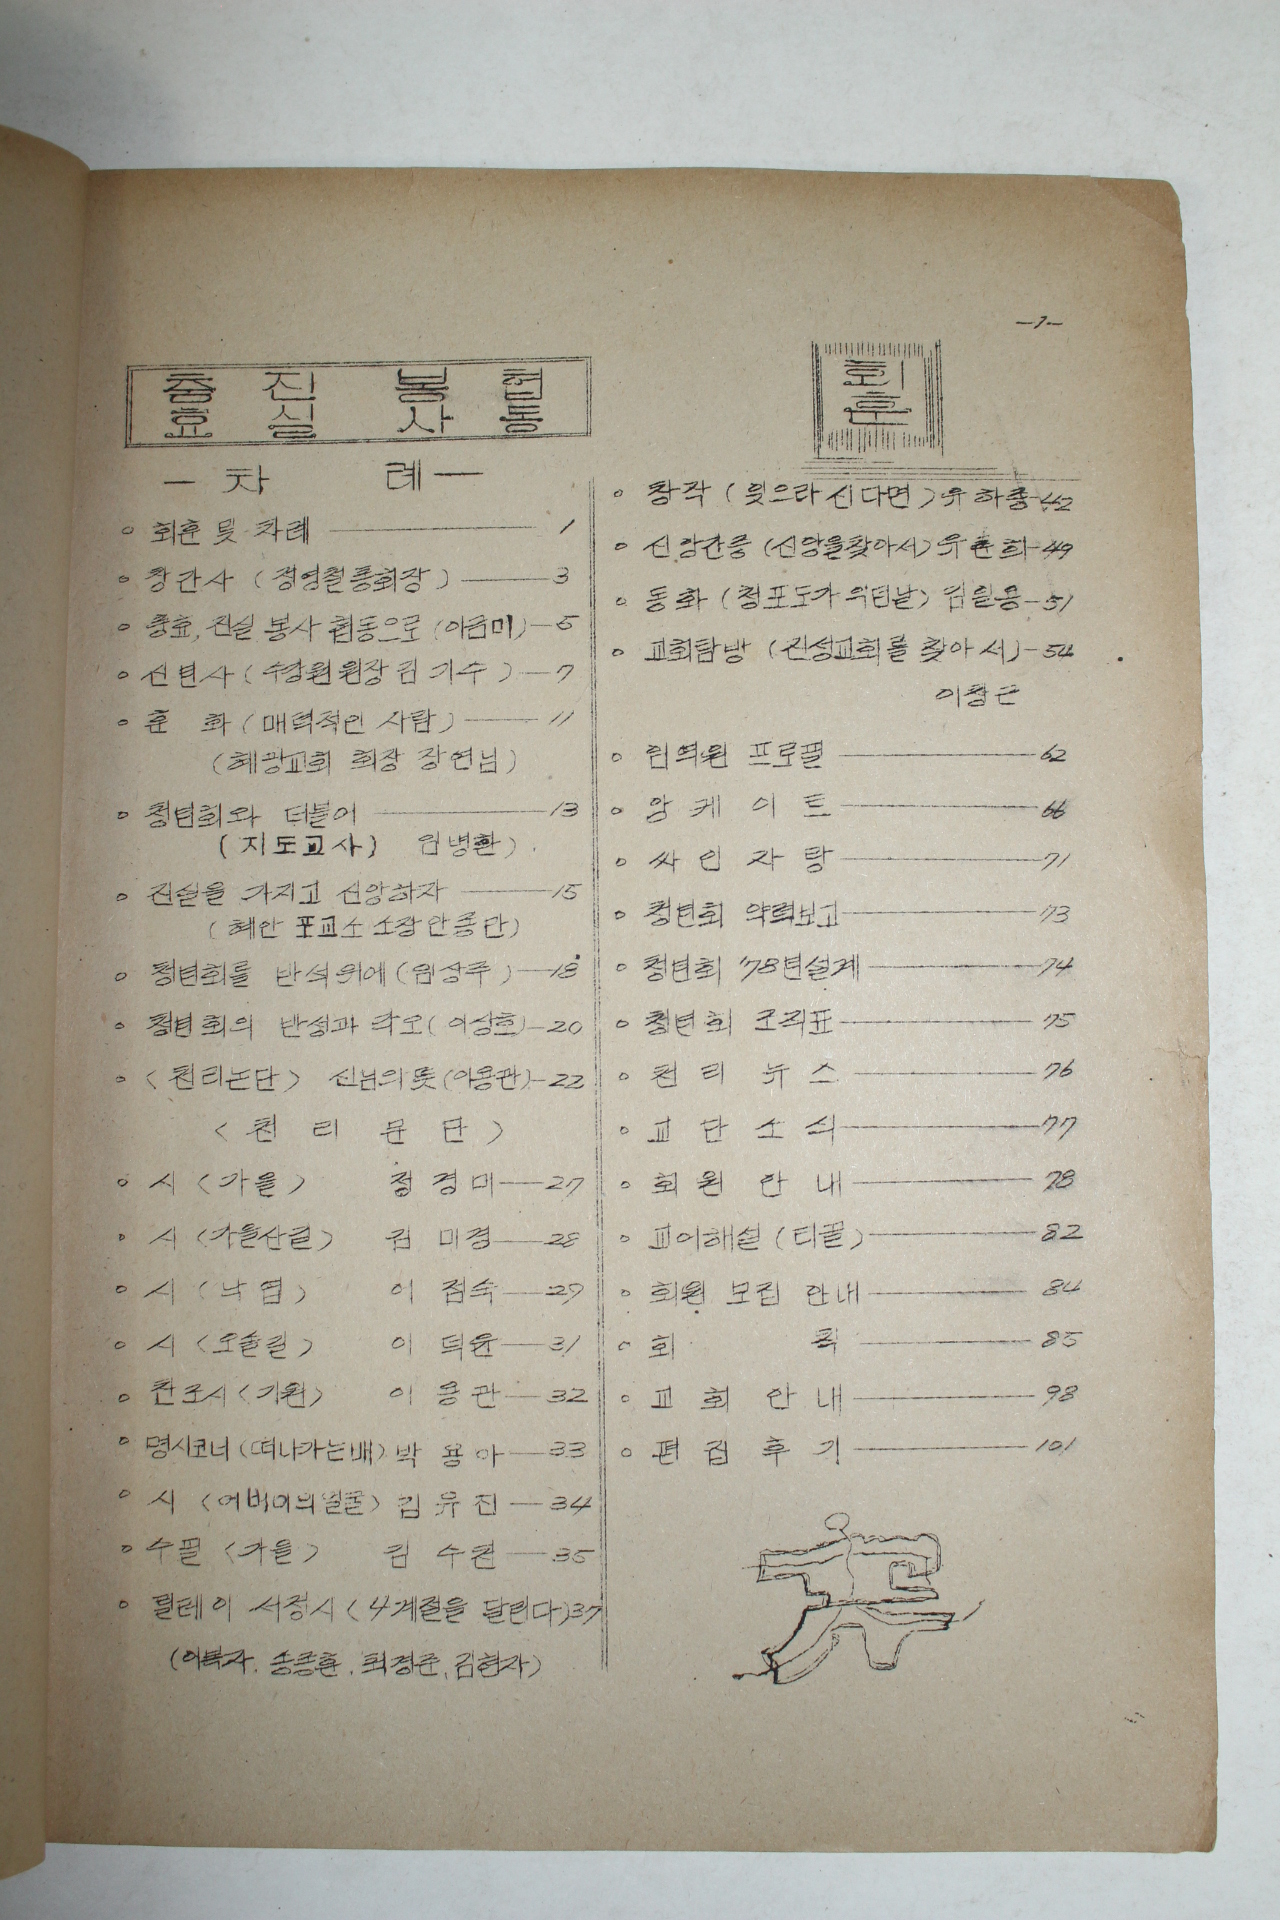 -1-
회훈
충효 진실 봉사 협동
- 차 례 -
◦ 회훈 및 차례 1
◦ 창간사 (정영철총회장) 3
◦ 충효, 진실 봉사 협동으로 (이금미) 5
◦ 신년사 (수강원원장 김기수) 7
◦ 훈 화 (매력적인 사람) 11
(혜광교회 회장 장연님)
◦ 청년회와 더불어 13
(지도교사) 임병환)
◦ 진실을 가지고 신앙하자 15
(혜안 포교소 소장 안종만)
◦ 청년회를 반석위에 (임상주) 18
◦ 청년회의 반성과 각오 (이상호) 20
◦ <천리논단> 신님의 뜻 (이용관) 22
<천 리 문 단>
◦ 시 <가을> 정경미 27
◦ 시 <가을산길> 김미경 28
◦ 시 <낙엽> 이점숙 29
◦ 시 <오솔길> 이덕윤 31
◦ 찬조시 <기원> 이용관 32
◦ 명시코너 (떠나가는배) 박용아 33
◦ 시 <어버이의얼굴> 김유진 34
◦ 수필 <가을> 김수천 35
◦ 릴레이 서정시 (4계절을 달린다) 37
(이복자. 송종훈. 최경준. 김현자)
◦ 창작 (잊으라 신다면) 유하종 42
◦ 신앙간증 (신앙을찾아서) 유춘희 49
◦ 동화 (청포도가 익던날) 김일응 51
◦ 교회탐방 (진성교회를 찾아서) 54
이창근
◦ 임역원 프로필 62
◦ 앙케이트 66
◦ 싸인자랑 71
◦ 청년회 약력보고 73
◦ 청년회 '78년설계 74
◦ 청년회 조직표 75
◦ 천리뉴스 76
◦ 교단소식 77
◦ 회원안내 78
◦ 교어해설 (티끌) 82
◦ 회원 모집 안내 84
◦ 회 칙 85
◦ 교회안내 98
◦ 편집후기 101